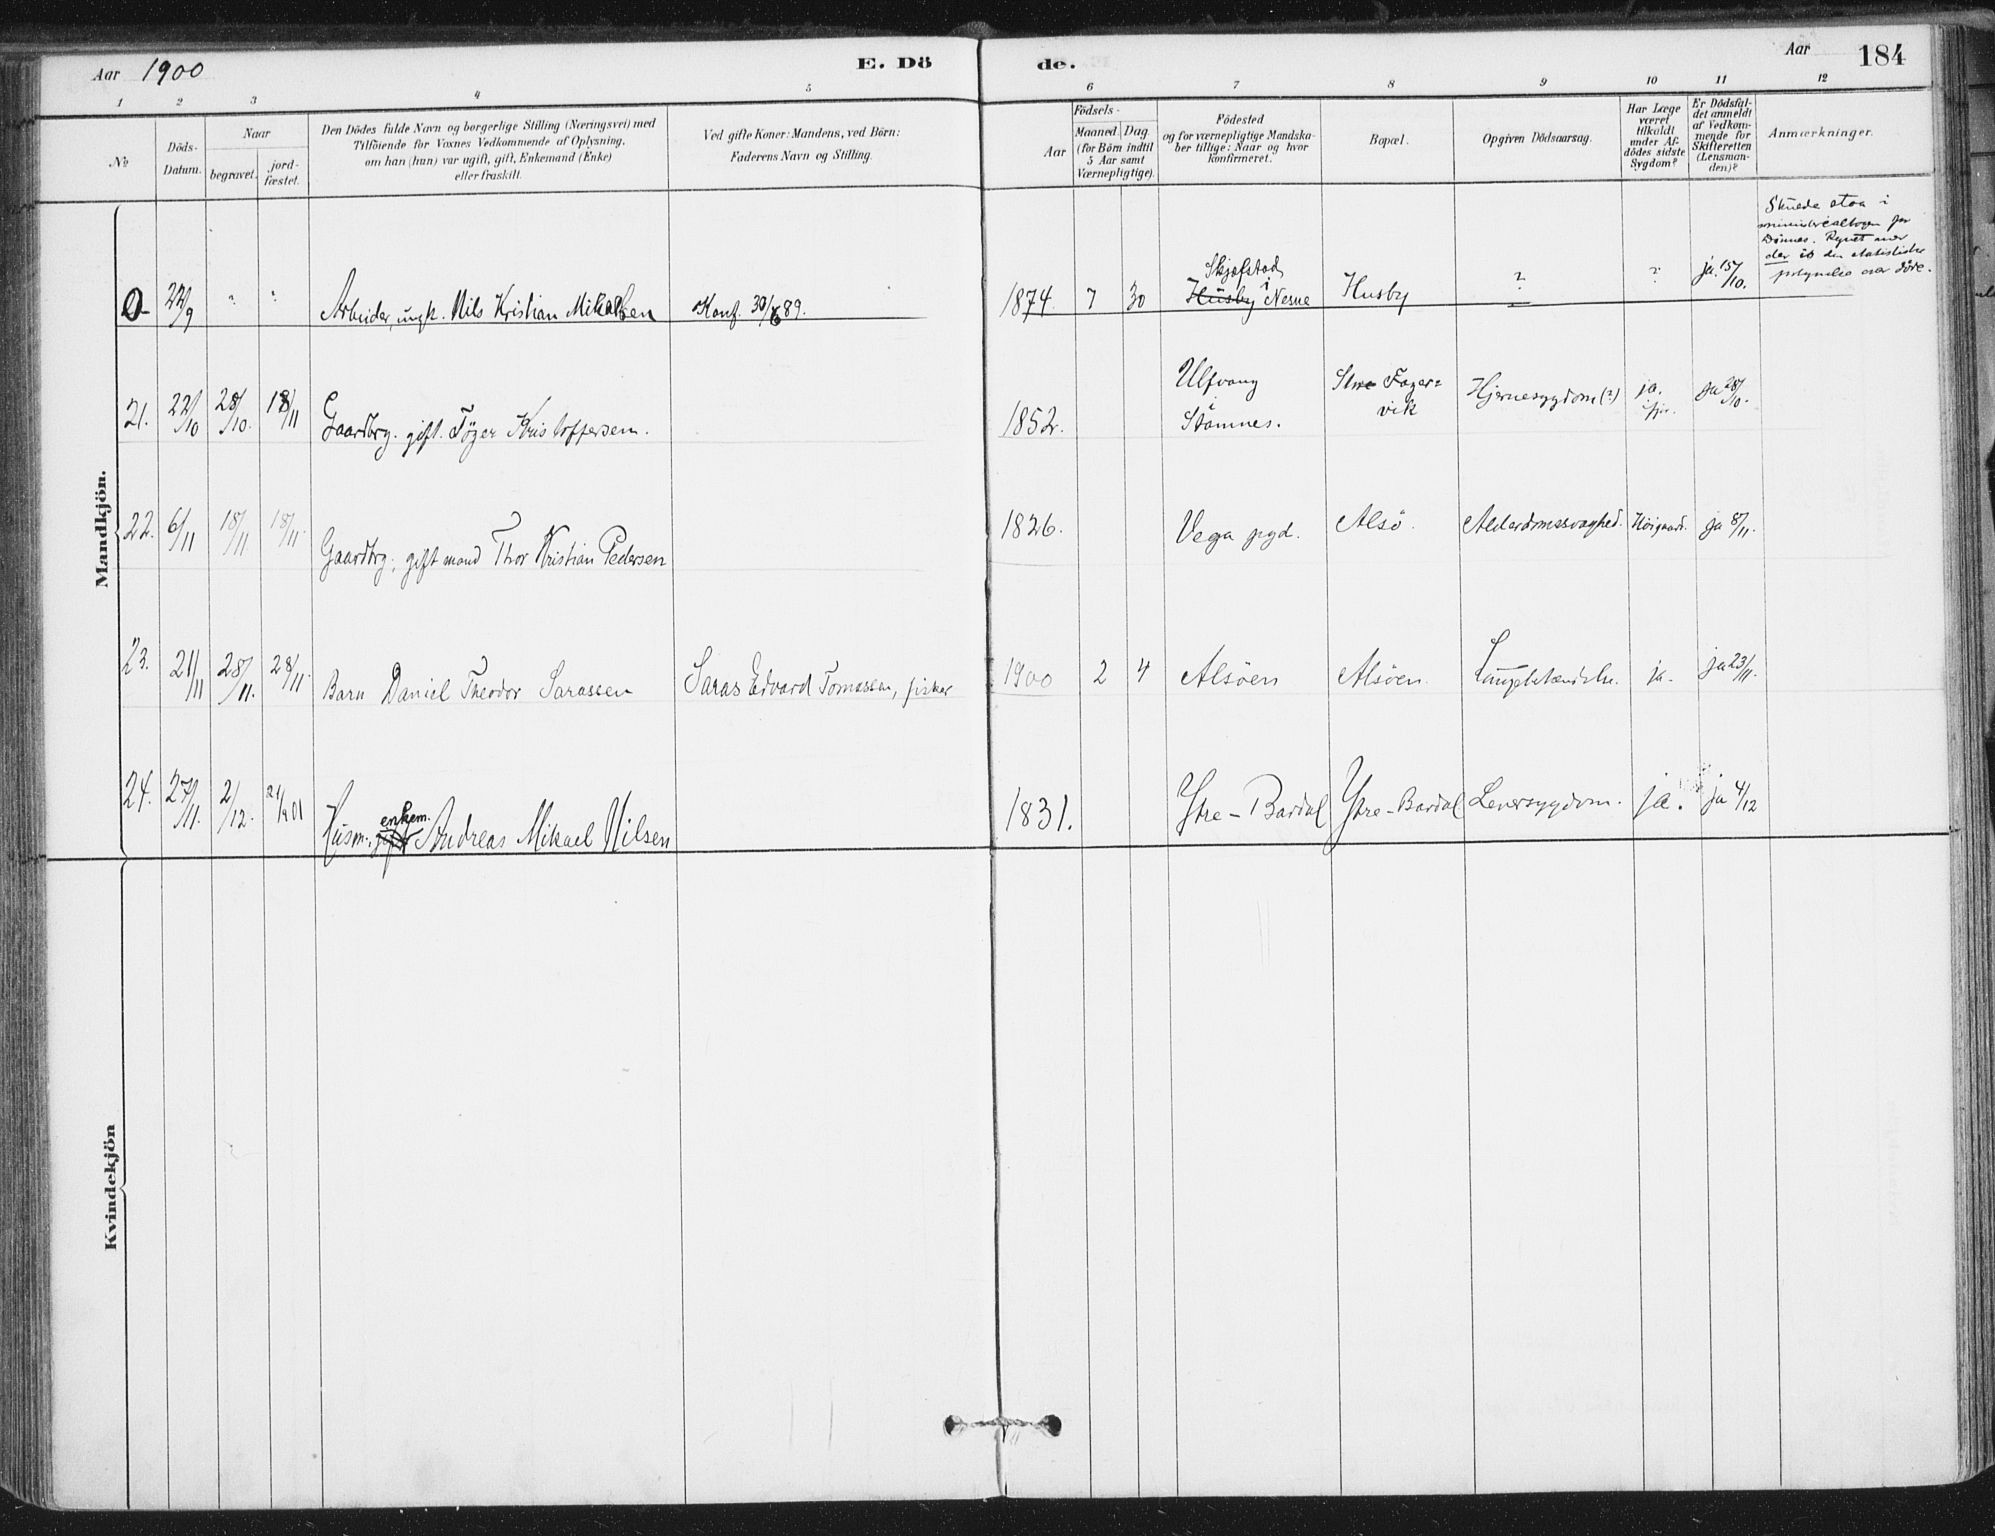 Aar 1900
E. Dö
de.
Aar
184
1 2 3 4 5 6 7 8 9 10 11 12
No
Döds-
Datum.
Naar
begravet.
jord-
fæstet.
Den Dödes fulde Navn og borgerlige Stilling (Næringsvei) med
Tilföiende for Voxnes Vedkommende af Oplysning,
om han (hun) var ugift, gift, Enkemand (Enke)
eller fraskilt.
Ved gifte Koner: Mandens, ved Börn:
Faderens Navn og Stilling.
Födsels-
Aar
Maaned. Dag.
(for Börn indtil
5 Aar samt
Værnepligtige).
Födested
og for værnepligtige Mandska-
ber tillige: Naar og hvor
konfirmeret.
Bopæl.
Opgiven Dödsaarsag.
Har Læge
været
tilkaldt
under Af-
dödes sidste
Sygdom?
Er Dödsfal-
det anmeldt
af Vedkom-
mende for
Skifteretten
(Lensman-
den)?
Anmærkninger.
Mandkjön.
0 22/9 ? ? Arbeider, ungk. Nils Kristian Mikalsen Konf. 30/6 89. 1874. 7 30
Skjefstad
Husby i Nesne Husby ? ? ja. 15/10.
Skulde staa i
ministerialbogen for
Dönnes.
21. 22/10 28/10. 18/11 Gaardbrg. gift. Töger Kristoffersen. 1852.
Ulfvang
i
Stamnes.
Fager=
vik
Hjernesygdom (?) ja. ja 28/10.
22. 6/11 18/11 18/11. Gaardbrg., gift mand Thor Kristian Pedersen 1826. Vega pgd. Alsö. Alderdomssvaghed. Höigaard. ja 8/11.
23. 21/11 28/11. 28/11. Barn Daniel Theodor Sarassen Saras Edvard Tomassen, fisker 1900 2 4 Alsöen Alsöen. Lungebetændelse. ja. ja 23/11.
24. 27/11. 2/12. Husm., gift enkem. Andreas Mikael Nilsen 1831. Ytre-Bardal Ytre-Bardal Leversygdom. ja. ja 4/12
Kvindekjön